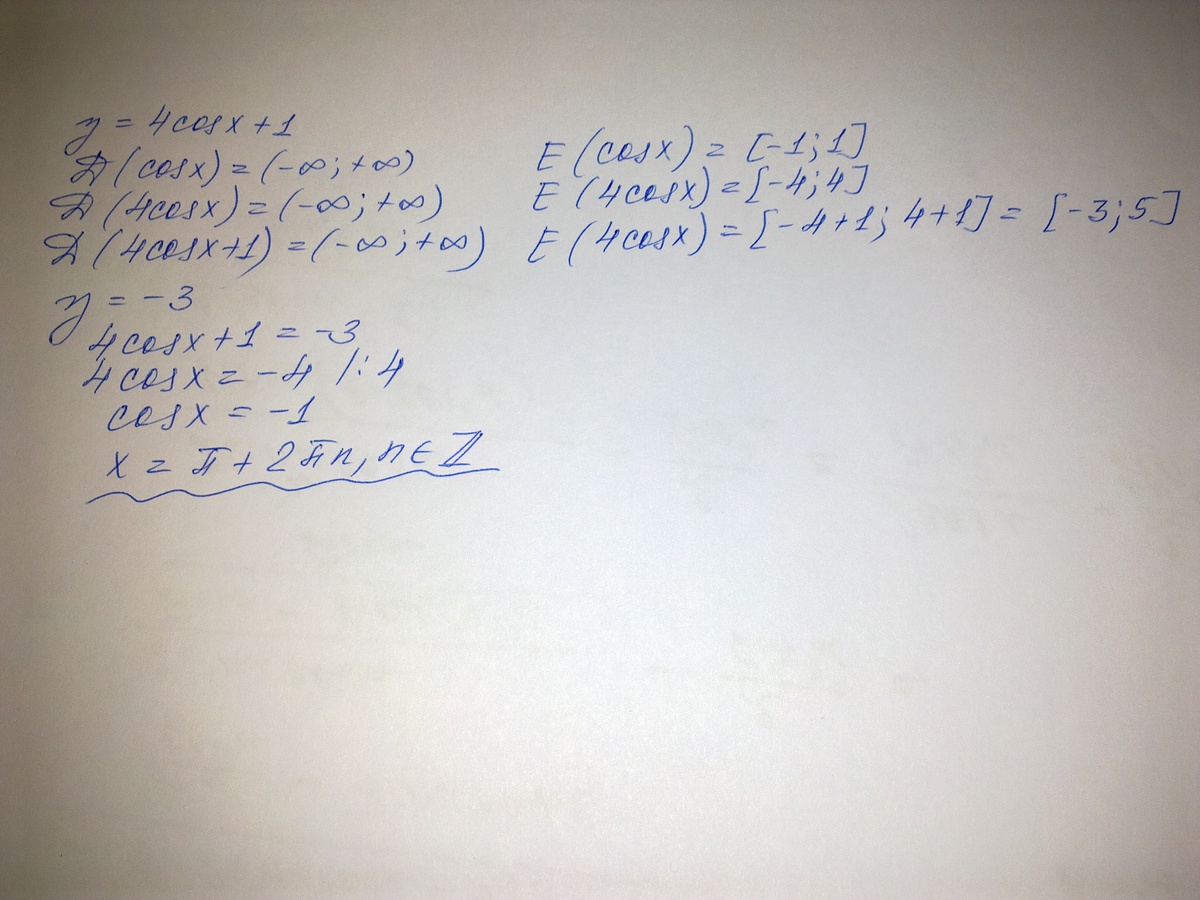 y = 4cosx+1
D(cosx)=(-∞;+∞)
D(4cosx)=(-∞;+∞)
D(4cosx+1)=(-∞;+∞)
E(cosx)=[-1;1]
E(4cosx)=[-4;4]
E(4cosx)=[-4+1; 4+1]= [-3;5]
y = -3
4cosx+1 = -3
4cosx = -4 /:4
cosx = -1
x = π+2πn, n∈ℤ